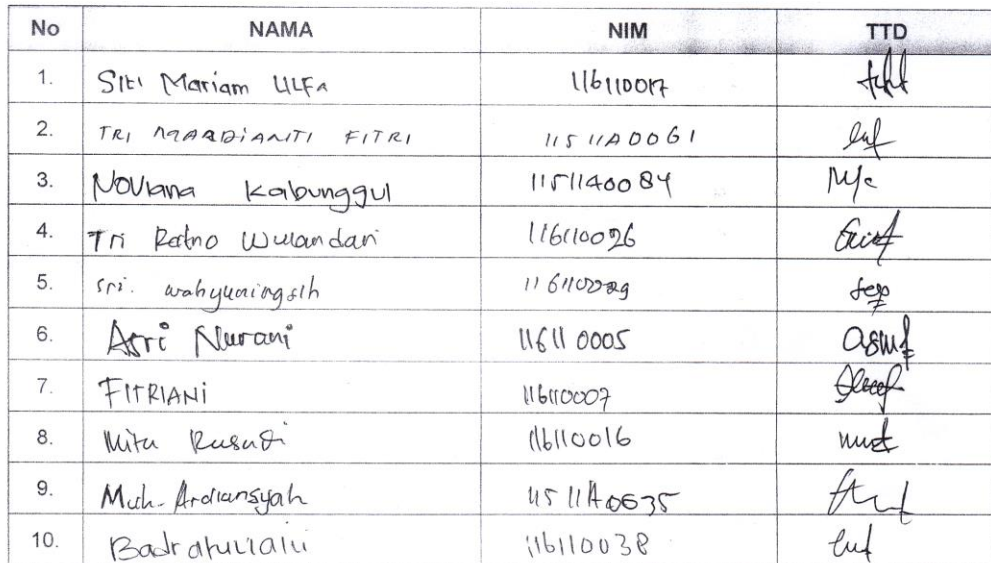 No NAMA NIM TTD
1. Siti Mariam ULFA 116110017
2. TRI MARDIANTI FITRI 11511A0061
3. NOViana Kabunggul 11511A0084
4. Tri Retno Wulandari 116110026
5. sri. wahyuningsih 116110029
6. Asri Nurani 116110005
7. FITRIANi 116110007
8. Mita 116110016
9. Muh. Ardiansyah 11511A0035
10. 116110038